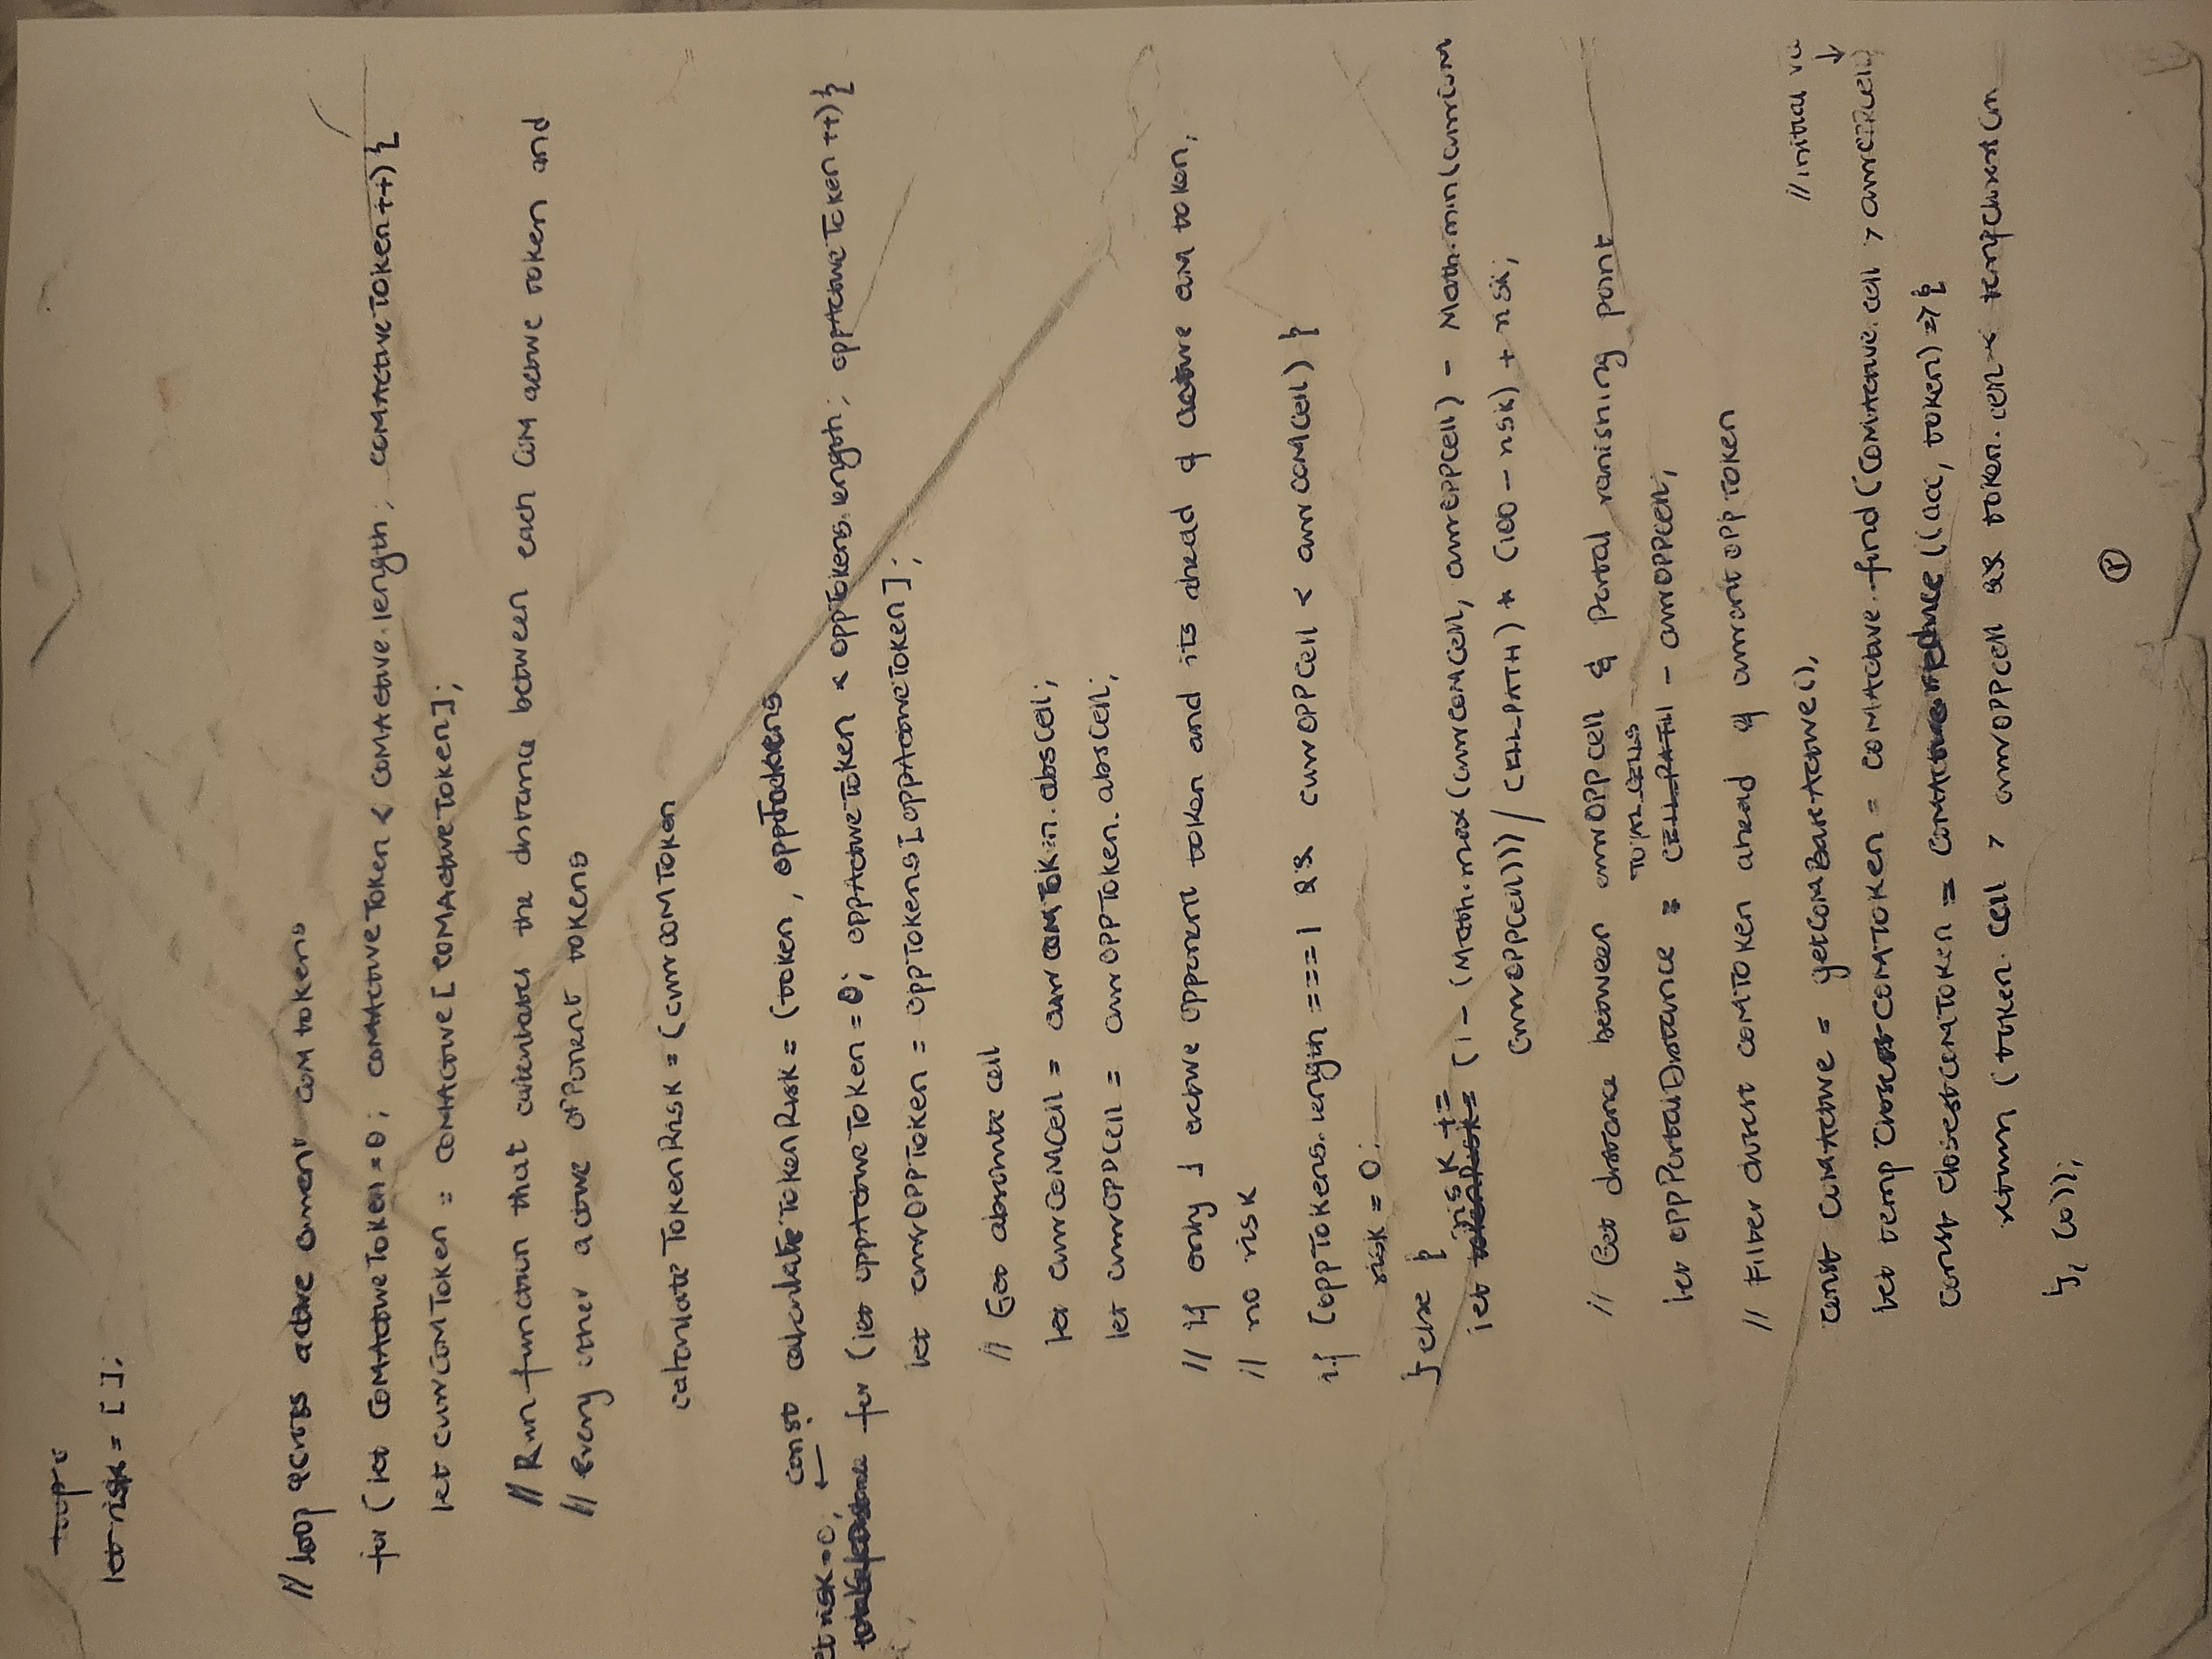 let risk = [ ];
// loop across active current COM tokens
for (let COMActiveToken = 0; COMActiveToken < COMActive.length; COMActiveToken ++) {
let currCOMToken = COMActive [ COMActiveToken ];
// Run function that calculates the distance between each COM active token and
// every other active opponent tokens
calculate TokenRisk = (currCOMToken
const calculateTokenRisk = (token, oppTokens
risk = 0; ←
for (let oppActiveToken = 0; oppActiveToken < oppTokens.length; oppActiveToken ++) {
let currOPPToken = oppTokens [oppActiveToken ];
// Get absolute cell
let currCOMCell = currCOMToken.absCell;
let currOPPCell = currOPPToken.absCell;
// If only 1 active opponent token and its ahead of active COM token,
// no risk
if (oppTokens.length === 1 && currOPPCell < currCOMCell) {
risk = 0;
} else {
risk +=
let tokenRisk = (1 - (Math.max (currCOMCell, currOPPCell) - Math.min(currCOM
currOPPCell))) / CELL_PATH) * (100 - risk) + risk;
// Get distance between currOPPcell & Portal vanishing point
TOTAL_CELLS
let oppPortalDistance = CELL_PATH - currOPPCell;
// Filter closest COMToken ahead of current opp token
// initial
const COMActive = getCOMBaseActive();
↓
let temp ClosestCOMToken = COMActive.find (COMActive.cell > currOPPCell)
const closestCOMToken = COMActive reduce ((acc, token) => {
return (token.cell > currOPPcell && token.cell < tempClosestCom
}, (0));